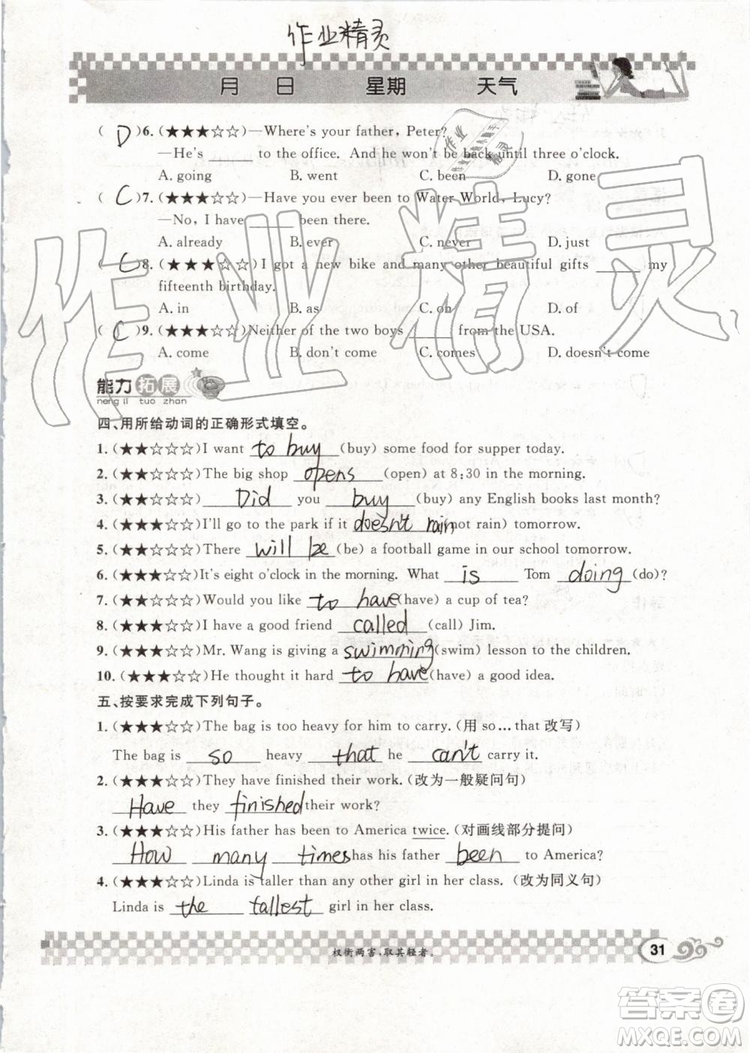 作业精灵
月 日 星期 天气
( D )6.(★★★☆☆)—Where's your father, Peter?
—He's ____ to the office. And he won't be back until three o'clock.
A. going B. went C. been D. gone
( C )7.(★★★☆☆)—Have you ever been to Water World, Lucy?
—No, I have ____ been there.
A. already B. ever C. never D. just
( C )8.(★★★☆☆)I got a new bike and many other beautiful gifts ____ my
fifteenth birthday.
A. in B. as C. on D. of
( C )9.(★★★☆☆)Neither of the two boys ____ from the USA.
A. come B. coming C. comes D. to come
能力拓展
neng li tuo zhan
四、用所给动词的正确形式填空。
1.(★★☆☆☆)I want to buy (buy) some food for supper today.
2.(★★☆☆☆)The big shop opens (open) at 8:30 in the morning.
3.(★★☆☆☆) Did you buy (buy) any English books last month?
4.(★★☆☆☆)I'll go to the park if it doesn't rain (not rain) tomorrow.
5.(★★☆☆☆)There will be (be) a football game in our school tomorrow.
6.(★★☆☆☆)It's eight o'clock in the morning. What is Tom doing (do)?
7.(★★☆☆☆)Would you like to have (have) a cup of tea?
8.(★★★☆☆)I have a good friend called (call) Jim.
9.(★★★☆☆)Mr. Wang is giving a swimming (swim) lesson to the children.
10.(★★★☆☆)He thought it hard to have (have) a good idea.
五、按要求完成下列句子。
1.(★★★☆☆)The bag is too heavy for him to carry. (用 so…that 改写)
The bag is so heavy that he can't carry it.
2.(★★★☆☆)They have finished their work. (改为一般疑问句)
Have they finished their work?
3.(★★★☆☆)His father has been to America twice. (对画线部分提问)
How many times has his father been to America?
4.(★★★☆☆)Linda is taller than any other girl in her class. (改为同义句)
Linda is the tallest girl in her class.
权衡两害，取其轻者。
31
作业精灵
作业精灵
答案圈
MXQE.COM